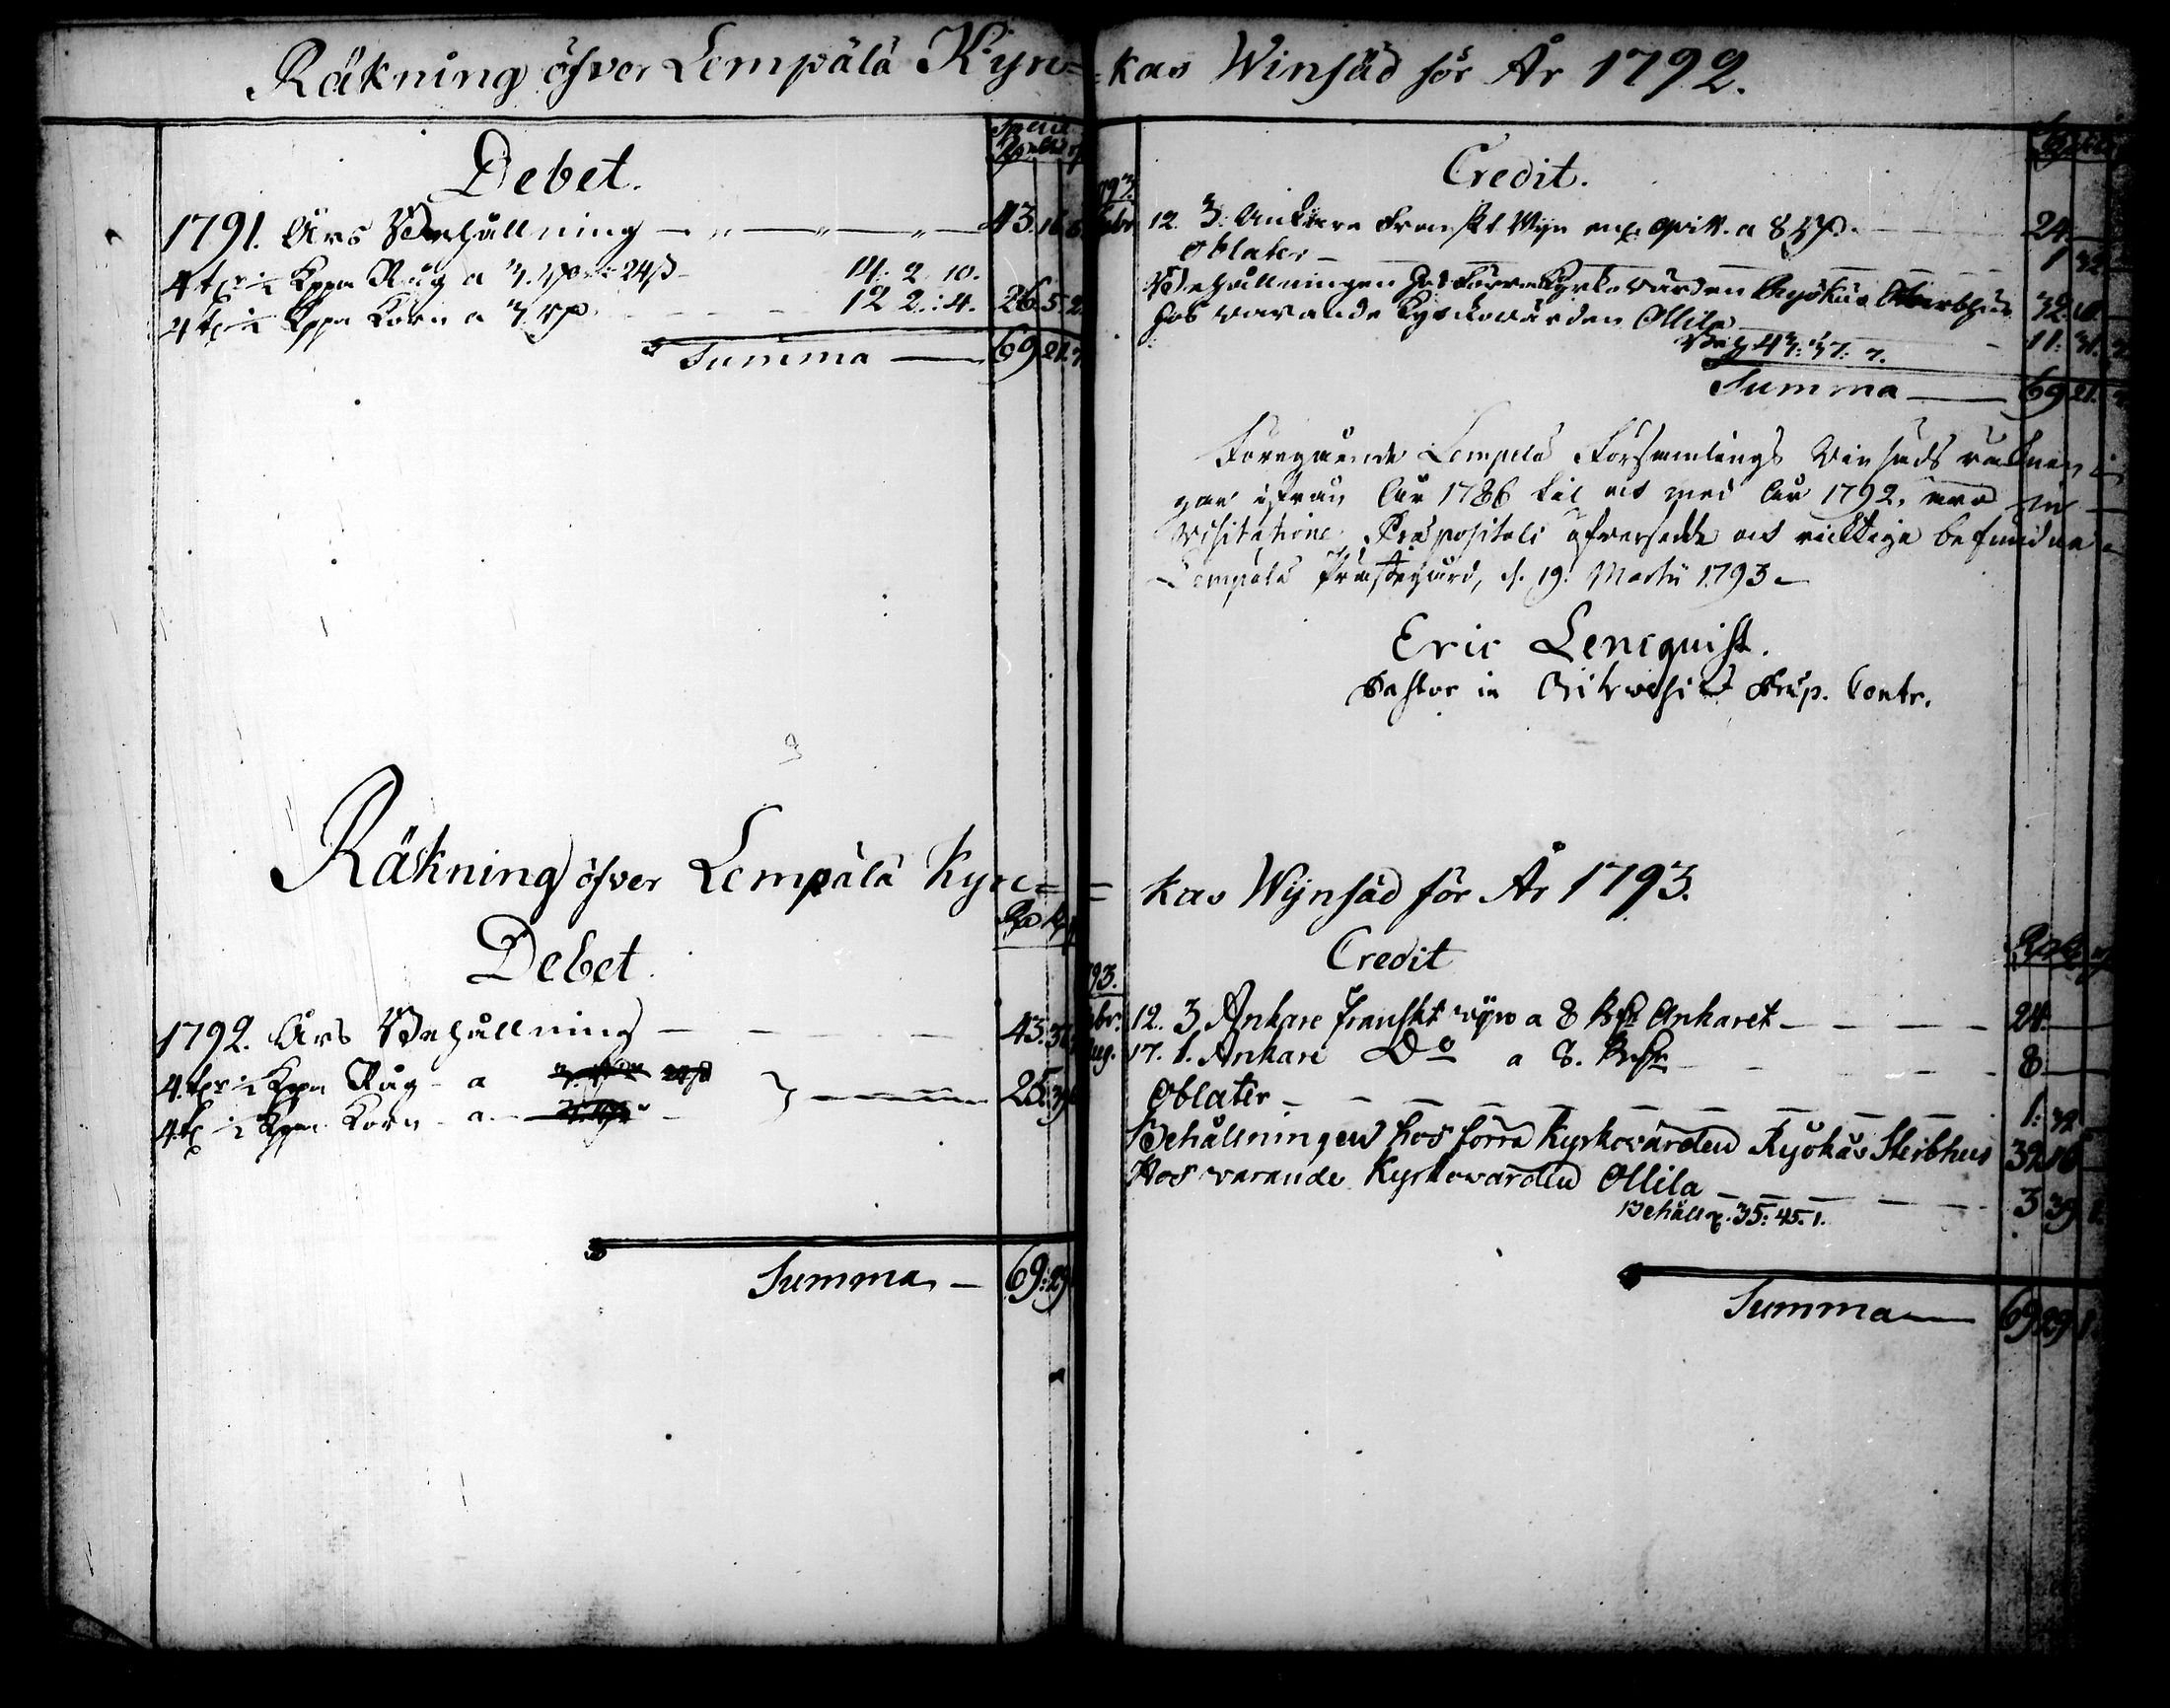 Räkning öfver Lempälä Kyr=
=kas Winsäd för År 1792.
Debet.
1791. Års Behållning 43. 16. 8
4 tr 1/2 Kppa Råg a 3. 24ß 14: 2. 10.
4 tr 1/2 Kppa Korn a 3 12 2.:4. 26. 5. 2
Summa 69 21. 7
Credit.
12. 3 Ankare Franskt Wyn a 8 24.
Oblater 1 32
Behållningen hos förra Kyrkovärden Kyökäs Sterbhus 32. 16
hos varande Kyrkovärden Ollila 11: 31. 7
Beh 43: 37: 7.
Summa 69 21. 7
Föregående Lempälä Församlings Vinsäds räknin=
gar ifrån år 1786 til och med år 1792, äro in
Visitatione Præpositali öfversedde och riktige befundne
Lempälä Prästegård, d. 19. Martii 1793
Eric Lencquist.
Pastor in Orihvesi et Præp. Contr.
Räkning öfver Lempälä Kyr=
= kas Wijnsäd för År 1793.
Debet.
1792. Års Behållning 43. 37
4 tr 1/2 Kppa Råg a 24ß
4 tr 1/2 Kppa Korn a 25. 39
Summa 69: 29
Credit
93.
12. 3 Ankare franskt wijn a 8 Rdr Ankaret 24.
17. 1. Ankare Do a 8. Rdr 8
Oblater 1: 32
Behållningen hos förra Kyrkovärden Kyökäs Sterbhus 32 16
Hos varande Kyrkovärden Ollila 3 39 1
Behålln. 35: 45. 1.
Summa 69 29 1